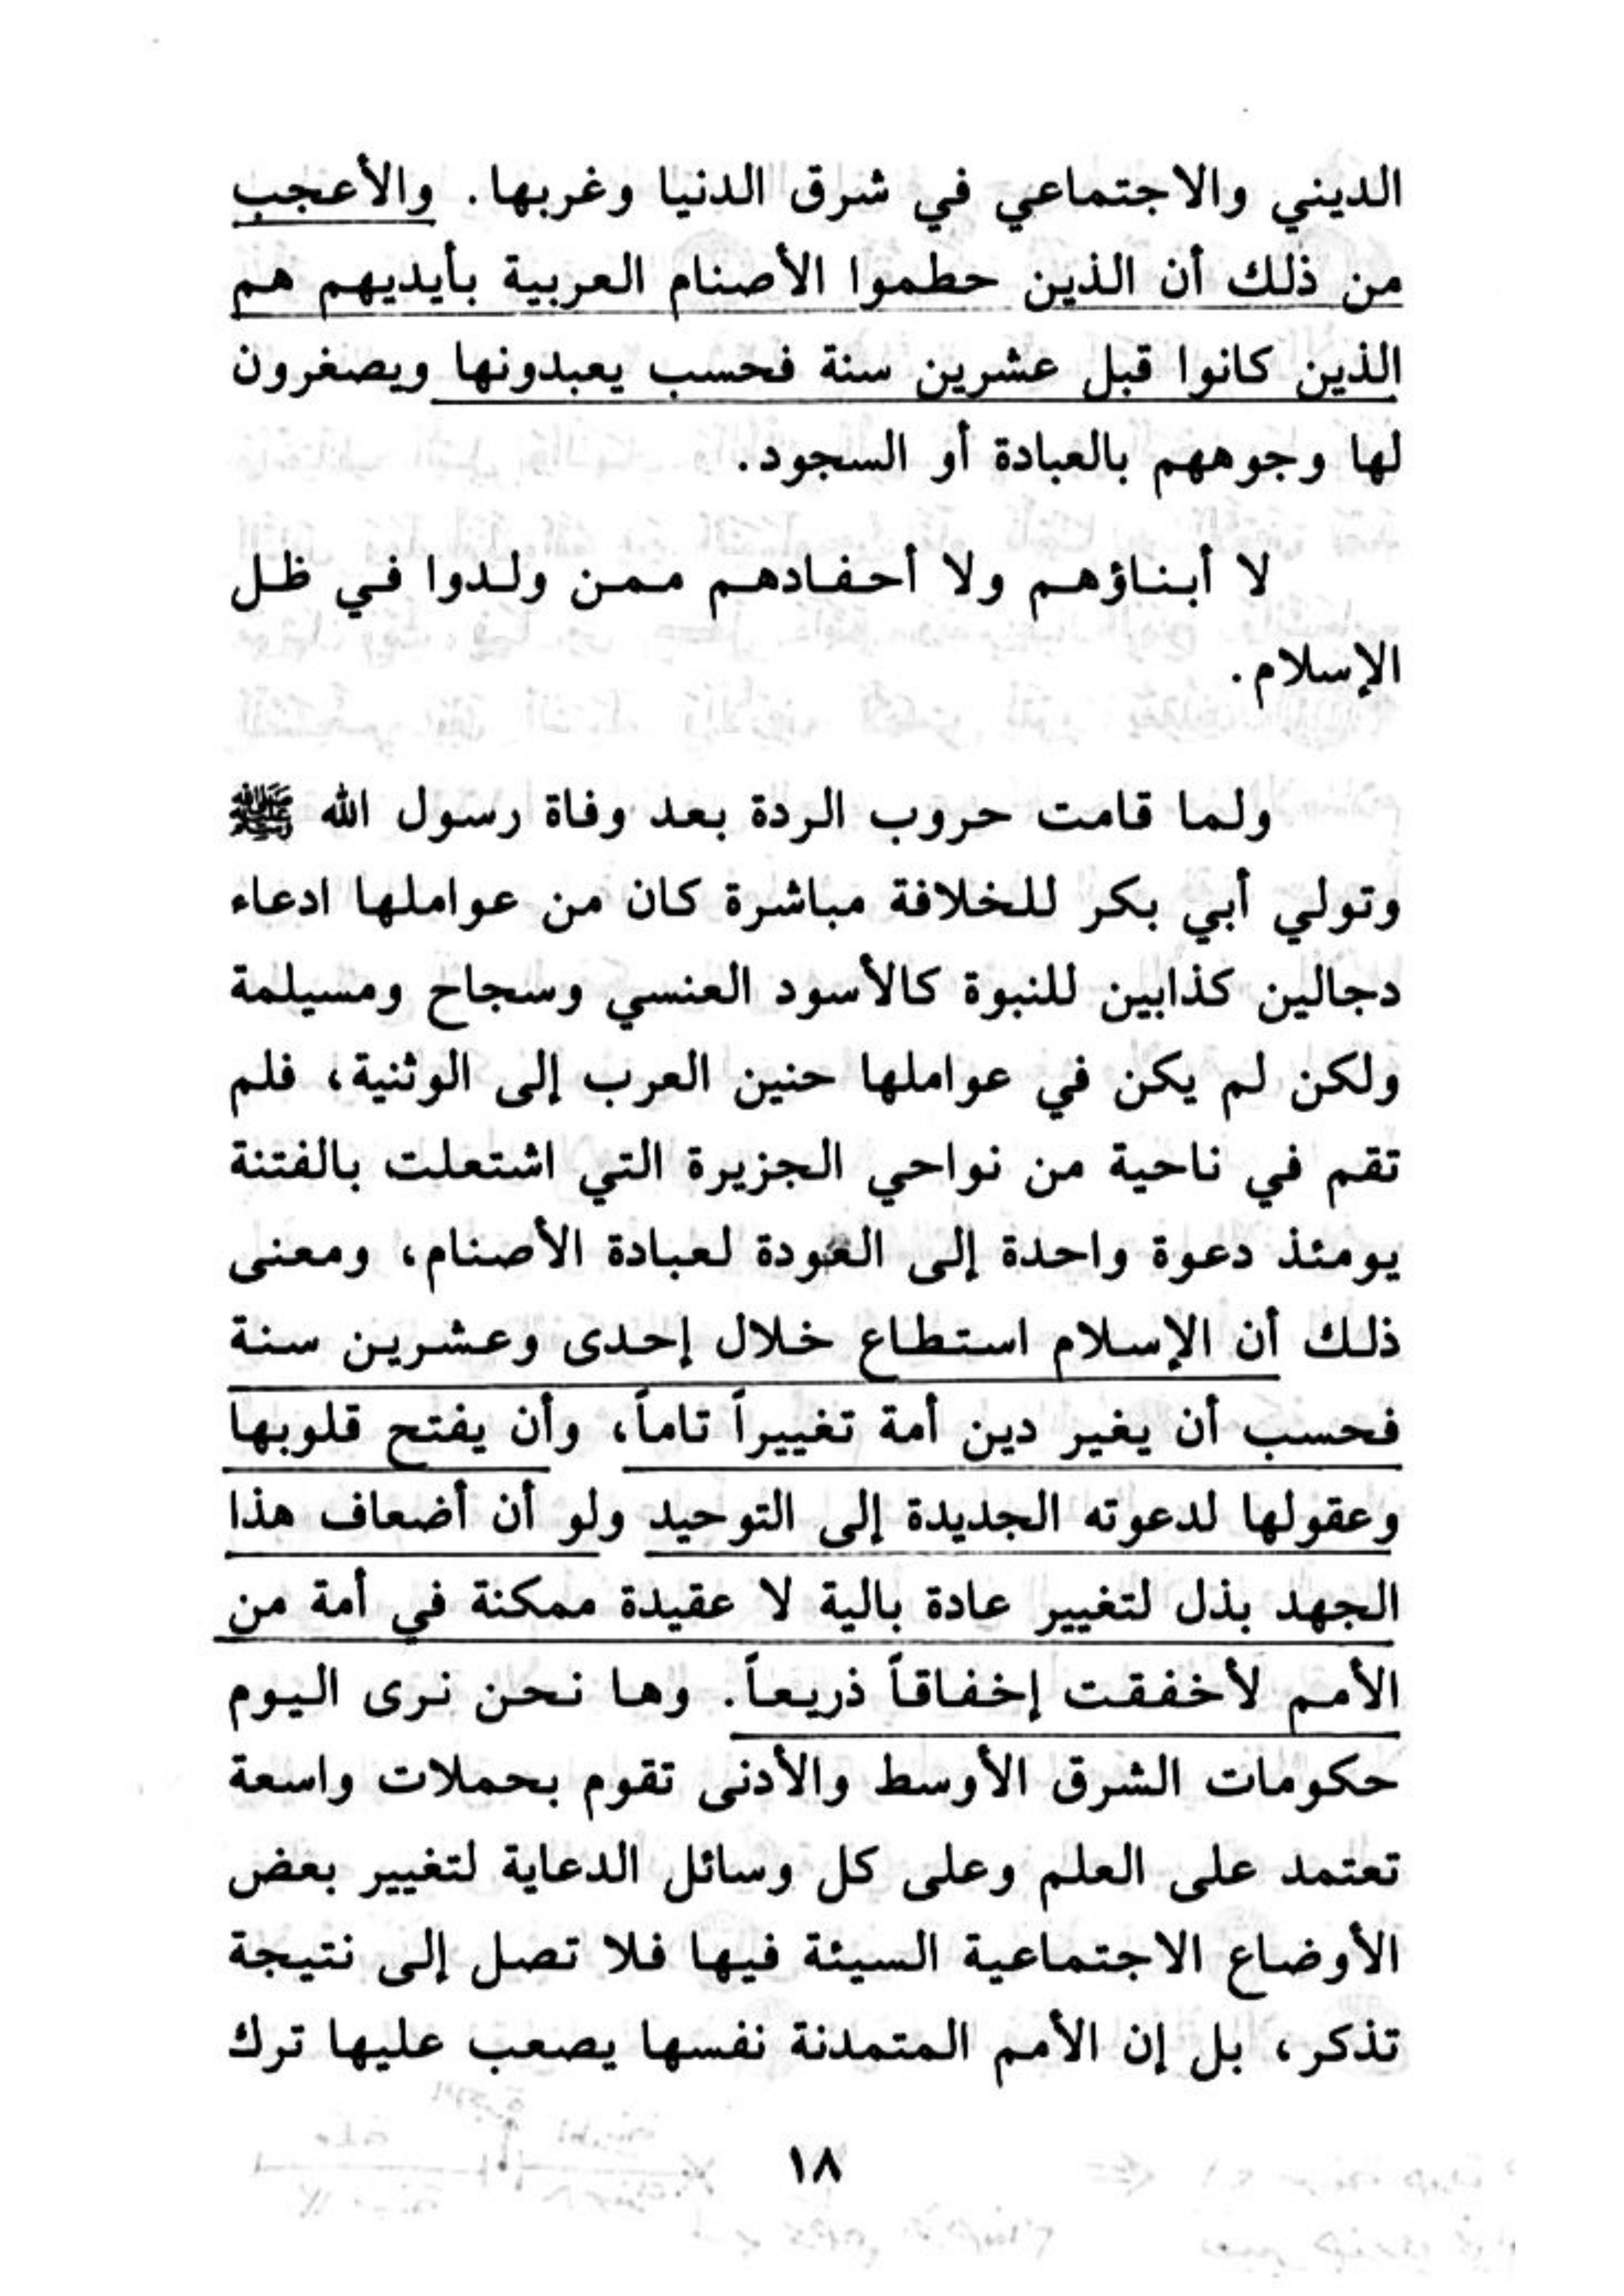 الديني والاجتماعي في شرق الدنيا وغربها. والأعجب
من ذلك أن الذين حطموا الأصنام العربية بأيديهم هم
الذين كانوا قبل عشرين سنة فحسب يعبدونها ويصغرون
لها وجوههم بالعبادة أو السجود.
لا أبناؤهم ولا أحفادهم ممن ولدوا في ظل
الإسلام.
ولما قامت حروب الردة بعد وفاة رسول الله ﷺ
وتولي أبي بكر للخلافة مباشرة كان من عواملها ادعاء
دجالين كذابين للنبوة كالأسود العنسي وسجاح ومسيلمة
ولكن لم يكن في عواملها حنين العرب إلى الوثنية، فلم
تقم في ناحية من نواحي الجزيرة التي اشتعلت بالفتنة
يومئذ دعوة واحدة إلى العودة لعبادة الأصنام، ومعنى
ذلك أن الإسلام استطاع خلال إحدى وعشرين سنة
فحسب أن يغير دين أمة تغييراً تاماً، وأن يفتح قلوبها
وعقولها لدعوته الجديدة إلى التوحيد ولو أن أضعاف هذا
الجهد بذل لتغيير عادة بالية لا عقيدة ممكنة في أمة من
الأمم لأخفقت إخفاقاً ذريعاً. وها نحن نرى اليوم
حكومات الشرق الأوسط والأدنى تقوم بحملات واسعة
تعتمد على العلم وعلى كل وسائل الدعاية لتغيير بعض
الأوضاع الاجتماعية السيئة فيها فلا تصل إلى نتيجة
تذكر، بل إن الأمم المتمدنة نفسها يصعب عليها ترك
١٨